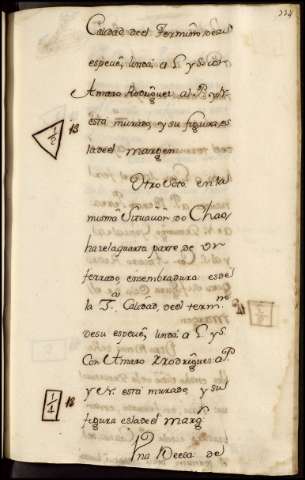 224
Calidad del Termino de su
especie, linda a L. y S. con
Amaro Rodriguez al P. y N.
esta murado, y su figura es
la del margen
1/2
13
Otro Soto en la
misma Situacion do Chao,
hare la quarta parte de un
ferrado en sembradura es de
la 3.ª Calidad, del termno
de su especie, linda a L. y S.
Con Amaro Rodriguez a P.
y N. esta murado, y su
figura es la del marg.n
1/4
13
Una Deesa de